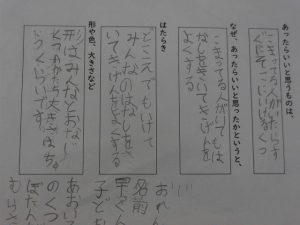 あったらいいと思うものは、
こまってる人がいたらす
ぐにそこにいけるくつ
なぜ、あったらいいと思ったかというと、
こまってる人がいてもは
なしをきいてきげんを
よくする
はたらき
どこえでもいけて
みんなのはなしをき
いてきげんをよくする
形や色、大きさなど
形はみんなとおなじ
くつのかたち大きさはち
ょうどいいです。
おれん
じ
名前
子ども
あおい
のくつ
ぼたん
むらさ